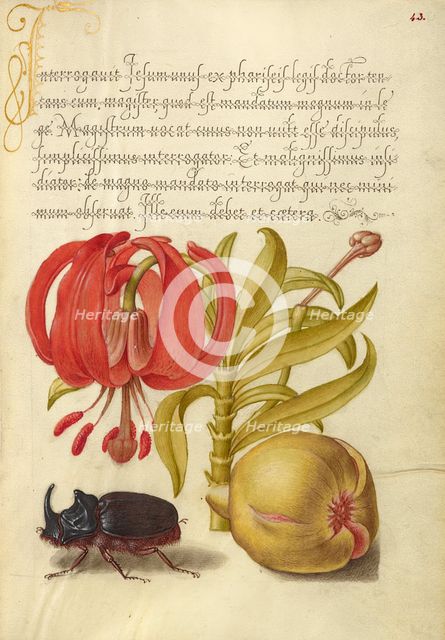 43.
Interrogavit Jesum unus ex phariseis legis doctor ten
tans eum. magister quod est mandatum magnum in le
ge. Magistrum vocat cuius non vult esse discipulus,
simplicissimus interrogator. Et malignissimus insi
diator: de magno mandato interrogat qui nec mini
mum observat. Ille eum debet et cætera.
Heritage
Heritage
Heritage
Heritage
Heritage